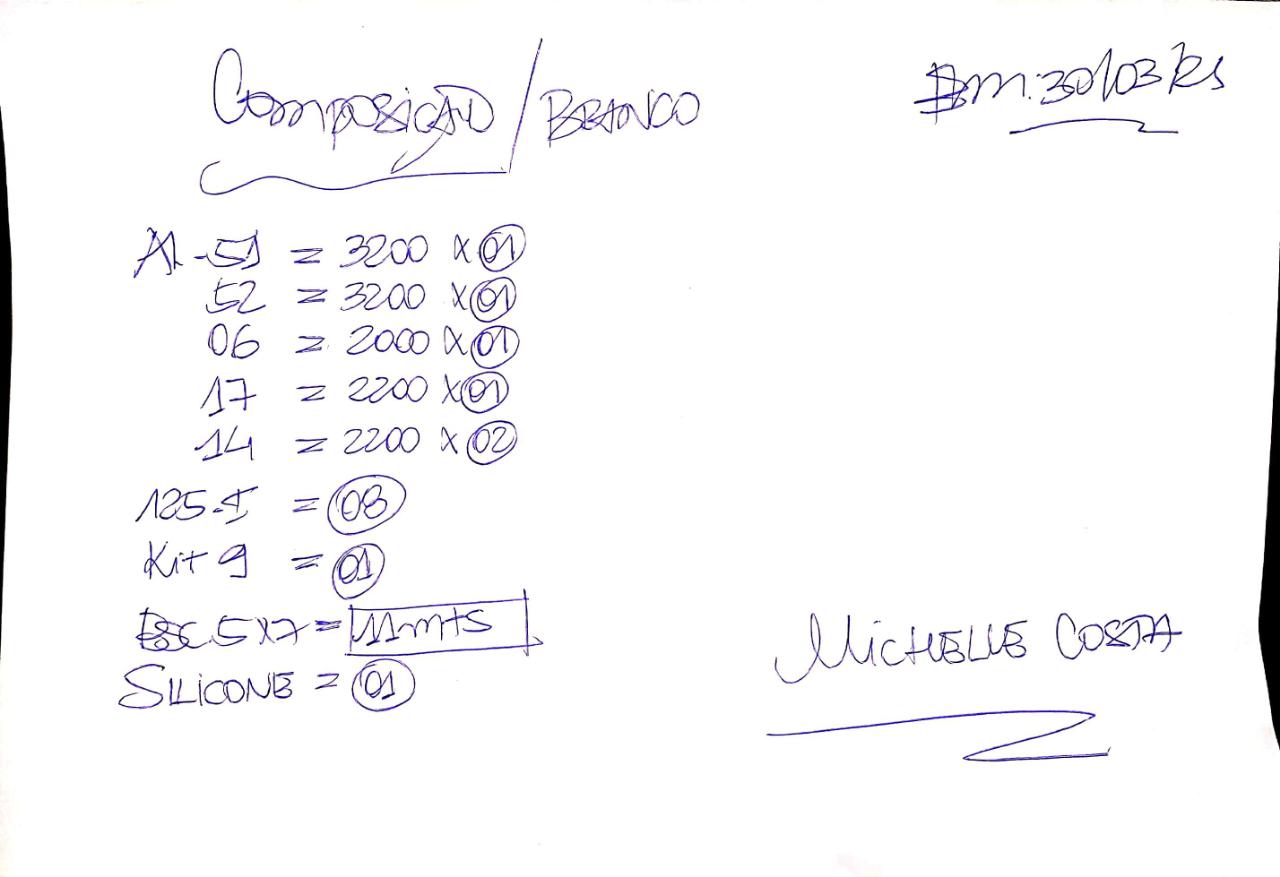 Composição / BRANCO
Am: 30/03/21
Al - 51 = 3200 x 01
52 = 3200 x 01
06 = 2000 x 01
17 = 2200 x 01
14 = 2200 x 02
125-I = 08
Kit 9 = 01
Esc 5x7 = 11mts
SILICONE = 01
MICHELLE COSTA